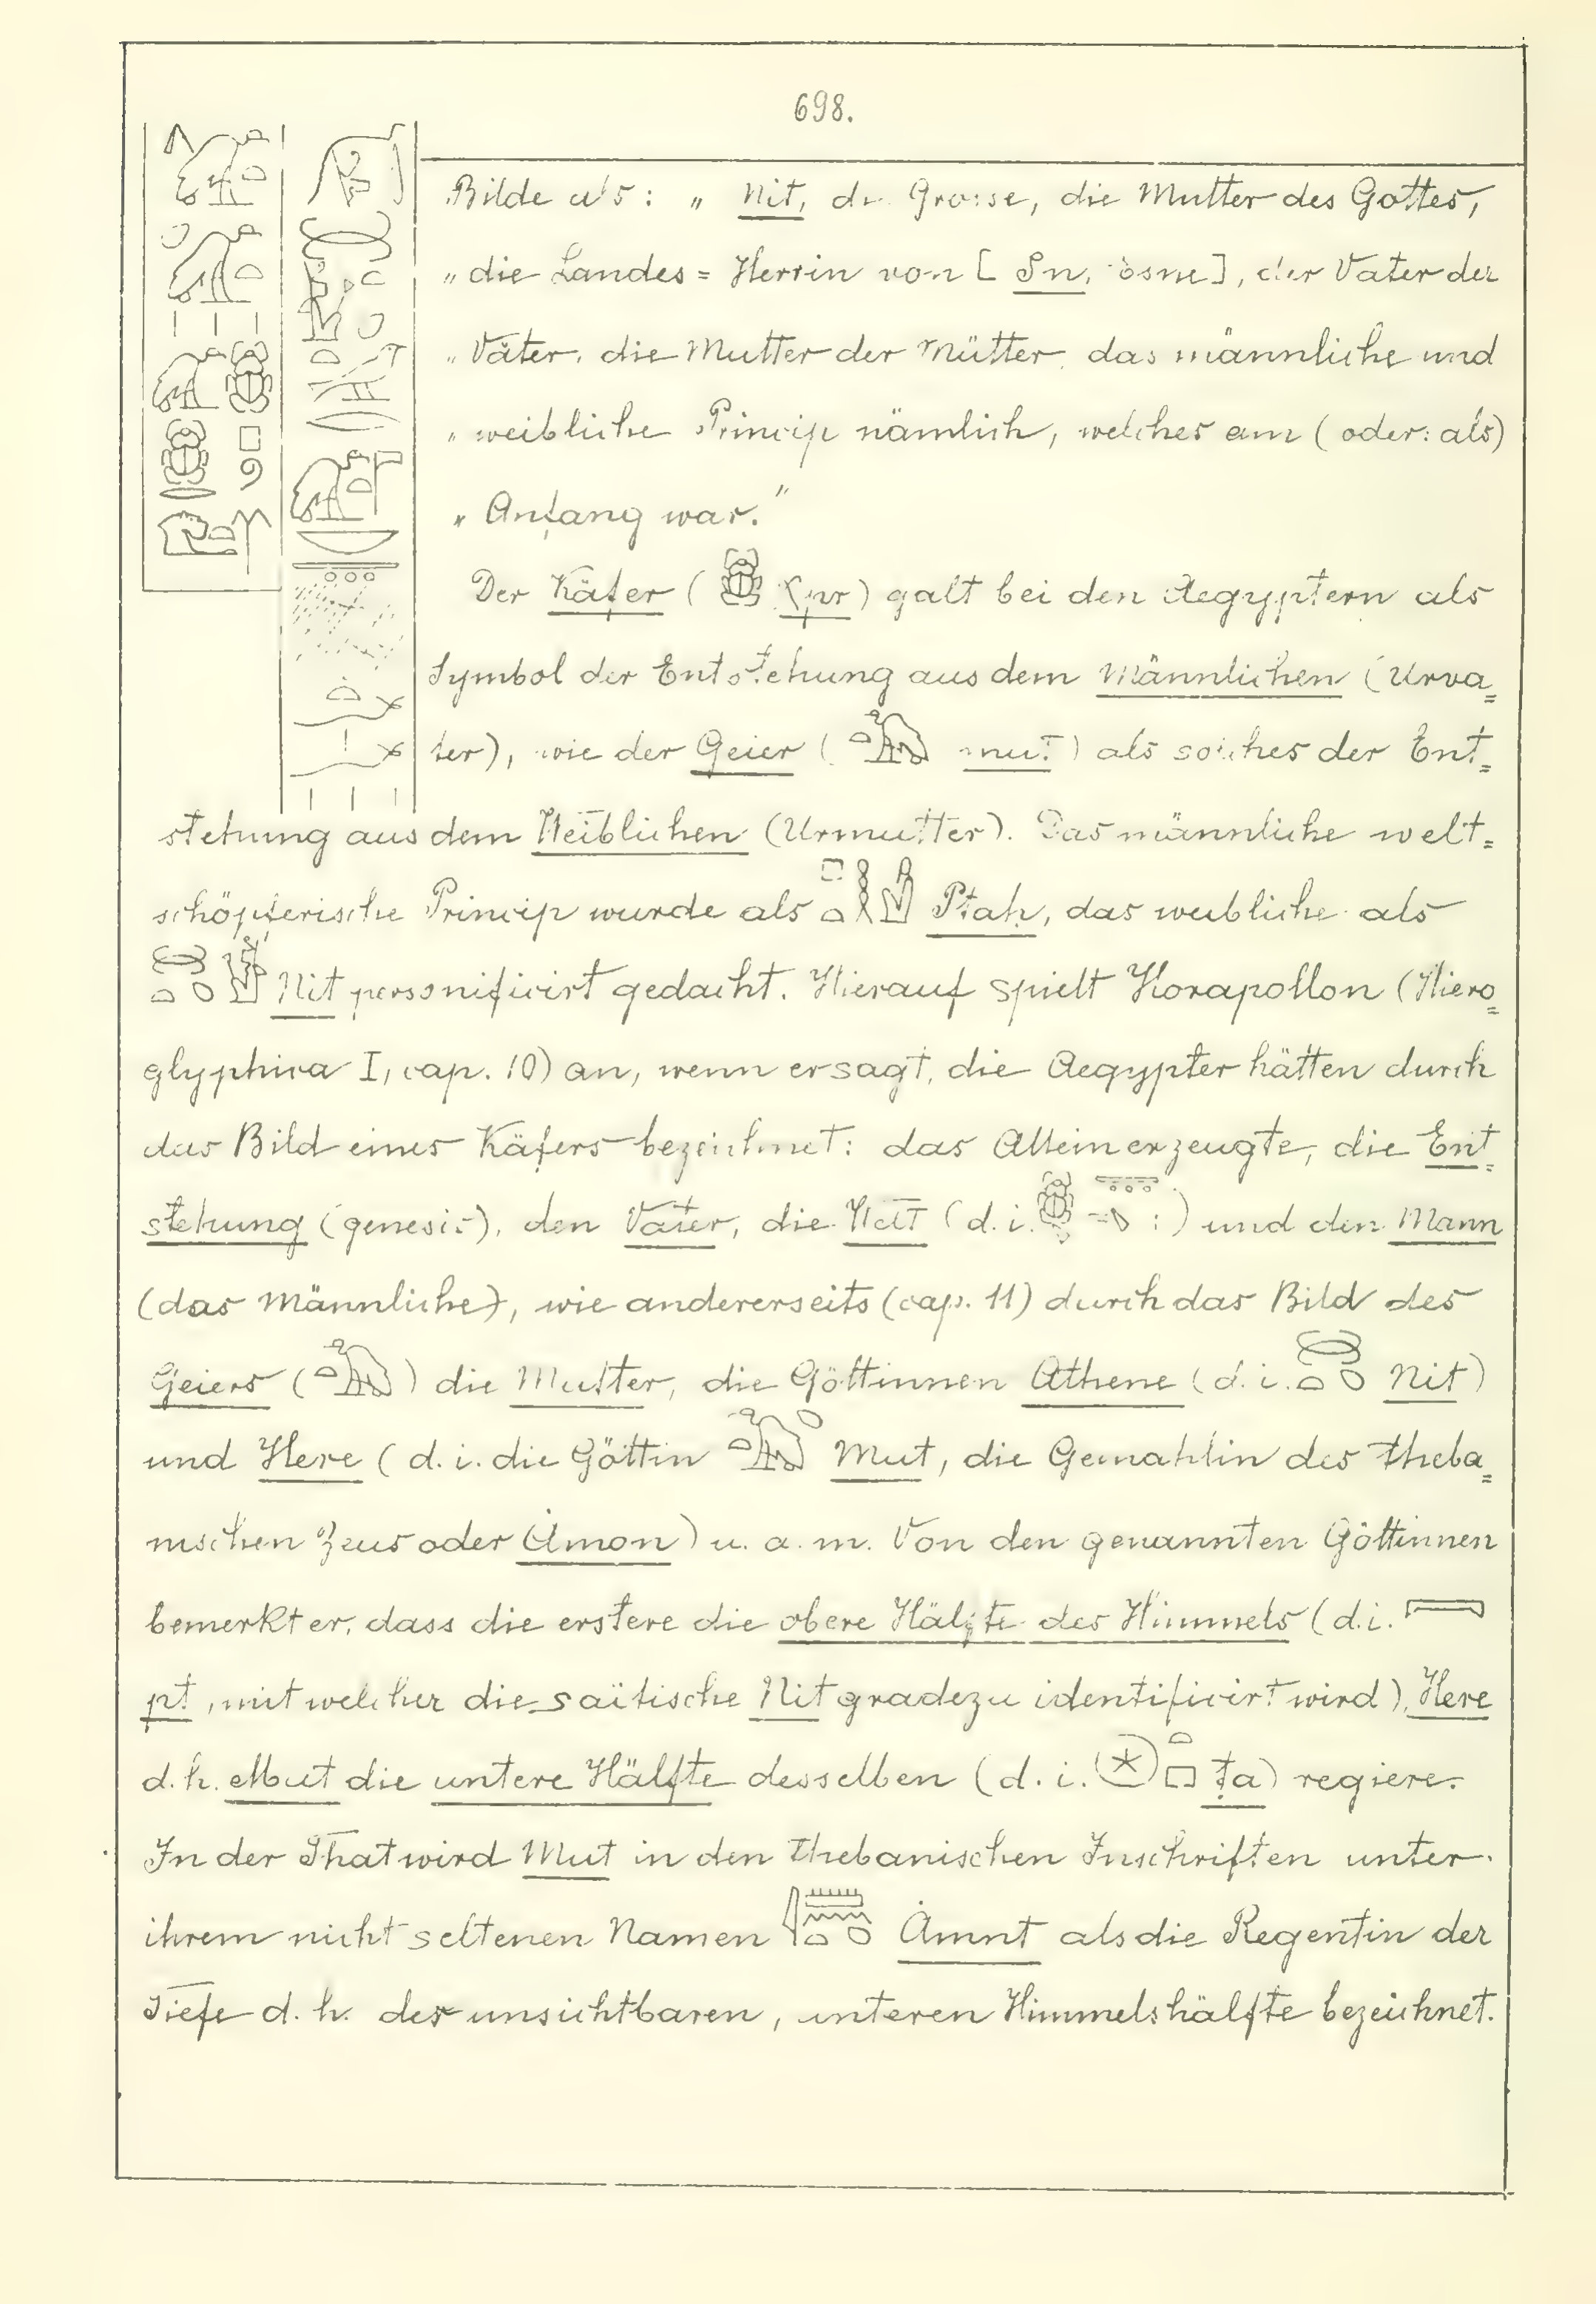 698.
Bilde als: „ Nit, die Grosse, die Mutter des Gottes,
„ die Landes=Herrin von [ Sn, ], der Vater der
„ Väter, die Mutter der Mütter, das männliche und
„ weibliche Princip nämlich, welches am (oder: als)
„ Anfang war.“
Der Käfer ( χpr) galt bei den Aegyptern als
Symbol der Entstehung aus dem Männlichen (Urva=
ter), wie der Geier ( mut) als solches der Ent=
stehung aus dem Weiblichen (Urmutter). Das männliche welt=
schöpferische Princip wurde als Ptah, das weibliche als
Nit personificirt gedacht. Hierauf spielt Horapollon (Hiero=
glyphica I, cap. 10) an, wenn er sagt, die Aegypter hätten durch
das Bild eines Käfers bezeichnet: das Alleinerzeugte, die Ent=
stehung (genesis), den Vater, die Welt (d. i. ) und den Mann
(das Männliche), wie andererseits (cap. 11) durch das Bild des
Geiers ( ) die Mutter, die Göttinnen Athene (d. i. Nit)
und Here (d. i. die Göttin Mut, die Gemahlin des theba=
nischen Zeus oder Ȧmon) u. a. m. Von den genannten Göttinnen
bemerkt er, dass die erstere die obere Hälfte des Himmels (d. i.
pt, mit welcher die saïtische Nit gradezu identificirt wird), Here
d. h. Mut die untere Hälfte desselben (d. i. ṭa) regiere.
In der That wird Mut in den thebanischen Inschriften unter
ihrem nicht seltenen Namen Ȧmnt als die Regentin der
Tiefe d. h. der unsichtbaren, unteren Himmelshälfte bezeichnet.